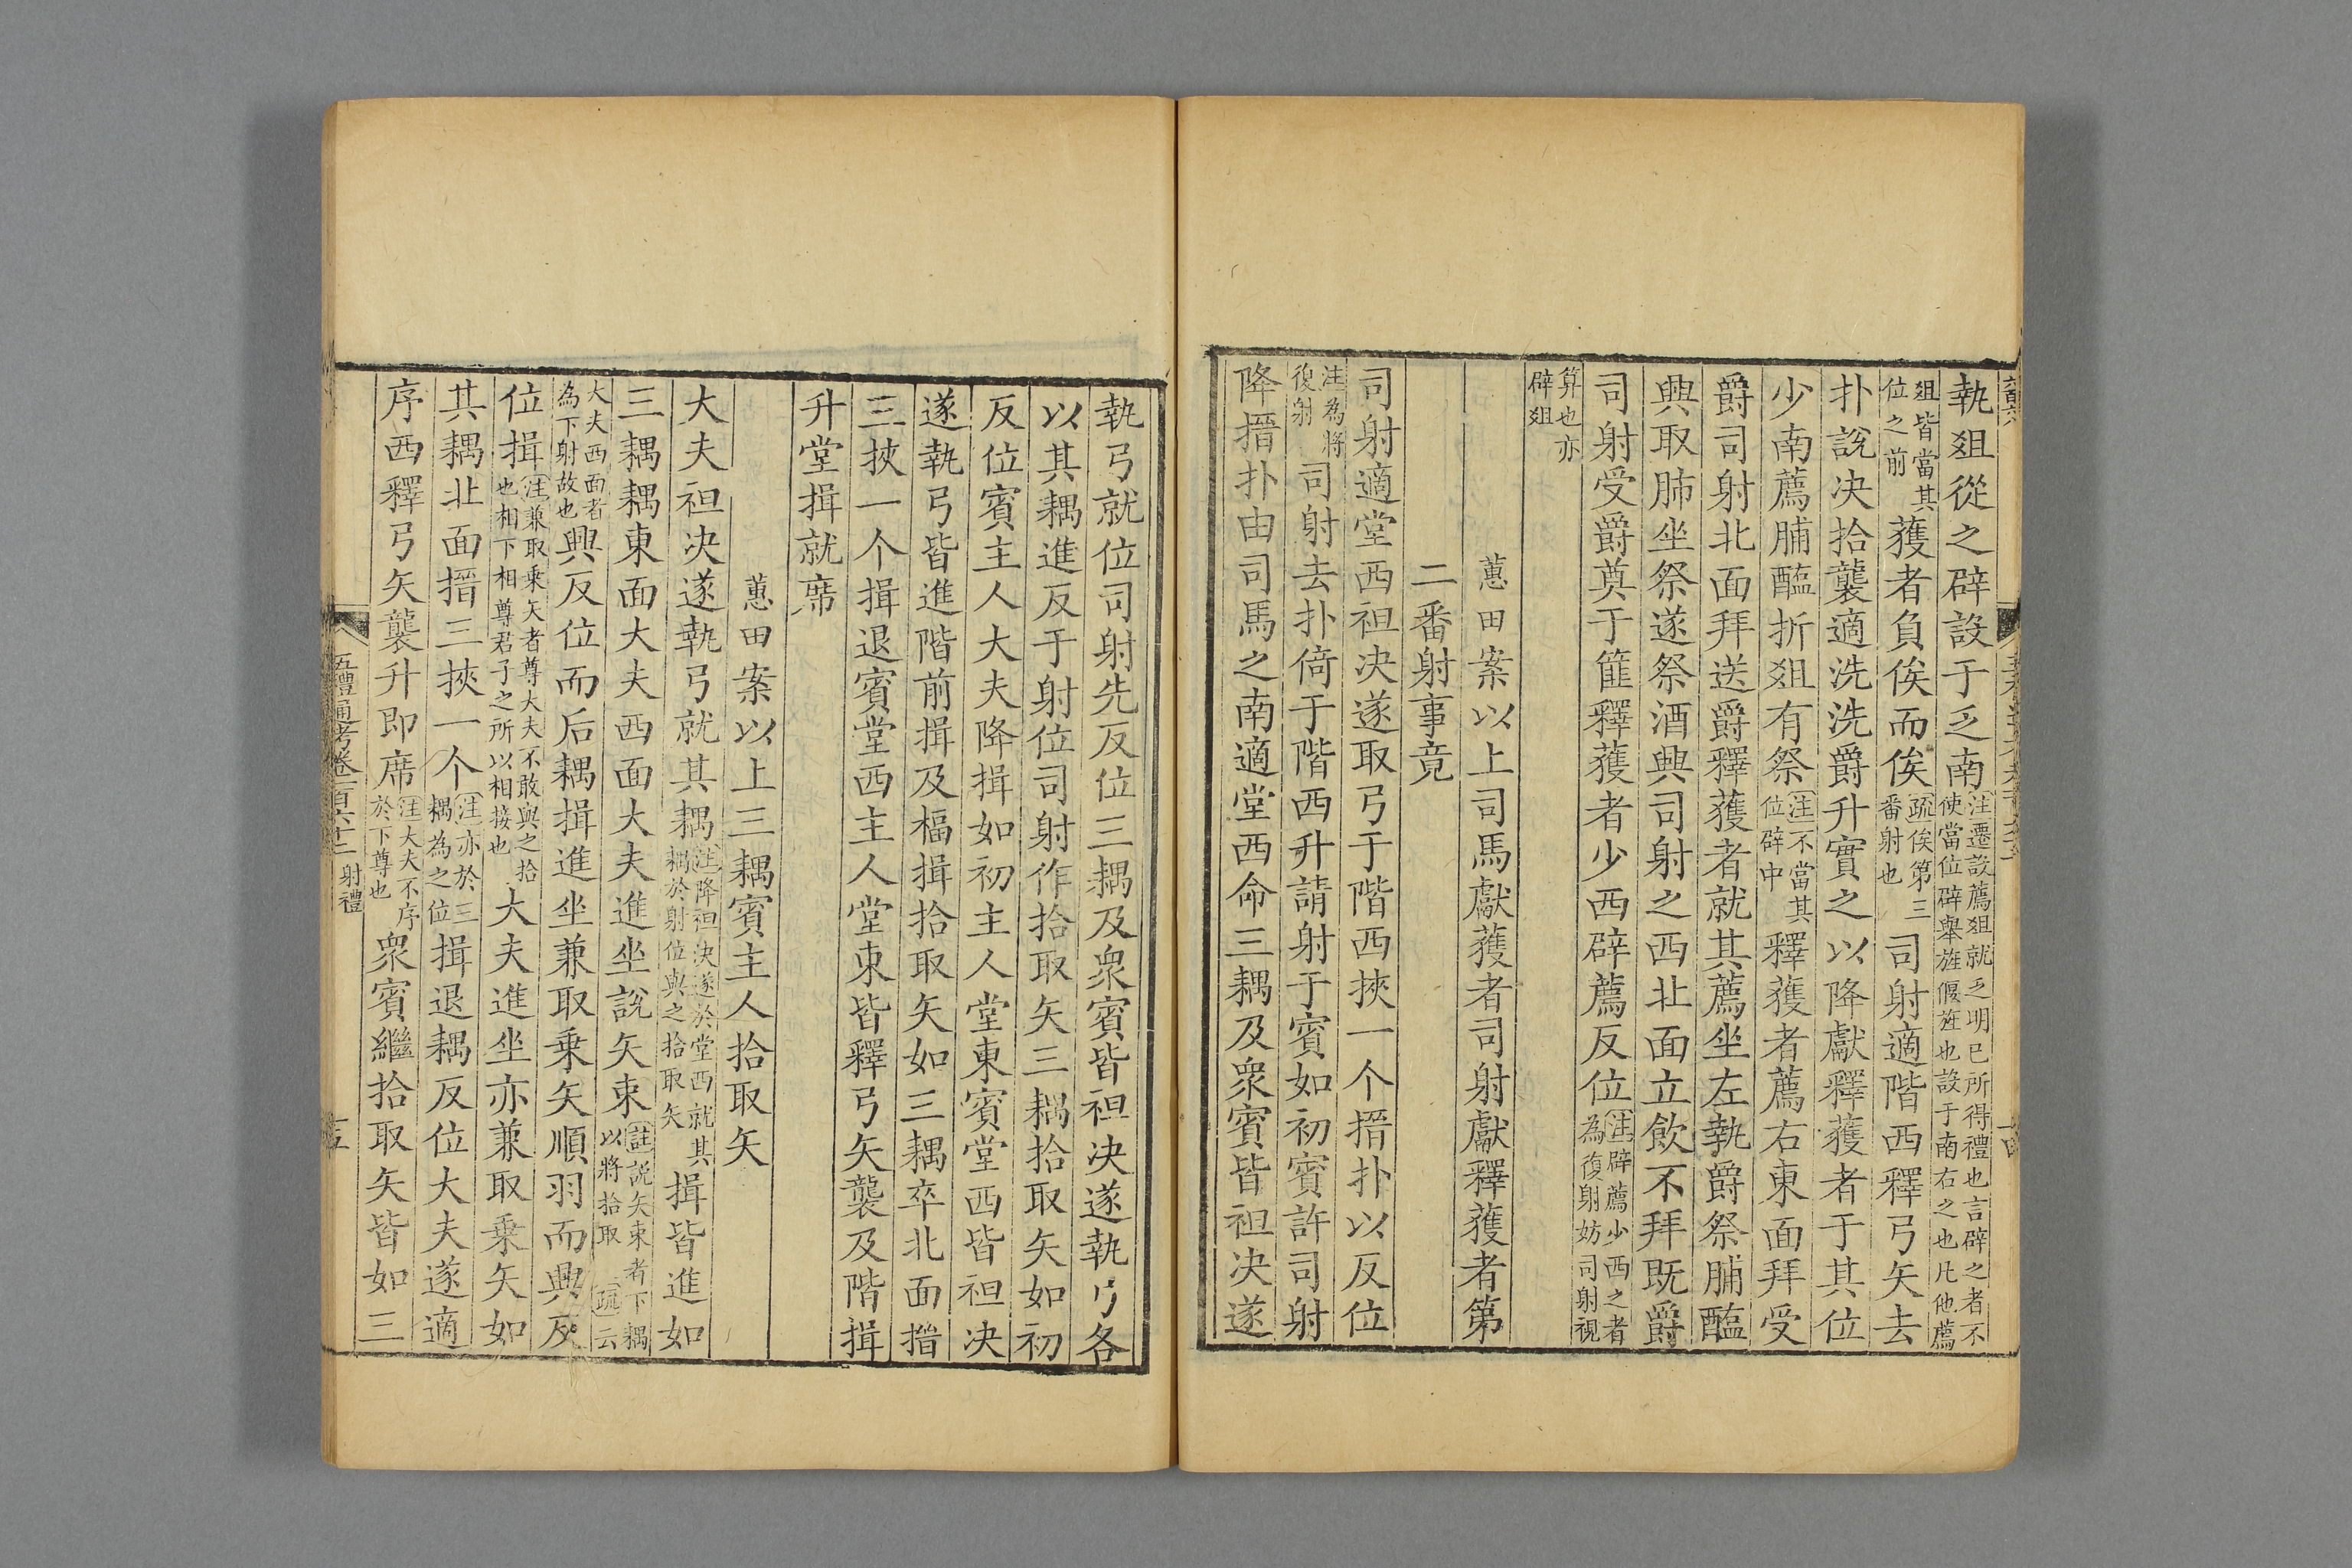 執爼從之辟設于乏南注遷設薦爼就乏明已所得禮也言辟之者不使當位辟舉旌偃旌也設于南右之也凡他薦
爼皆當其位之前獲者負侯而俟疏俟第三番射也司射適階西釋弓矢去
扑說決拾襲適洗洗爵升實之以降獻釋獲者于其位
少南薦脯醢折爼有祭注不當其位辟中釋獲者薦右東面拜受
爵司射北面拜送爵釋獲者就其薦坐左執爵祭脯醢
興取肺坐祭遂祭酒興司射之西北面立飲不拜既爵
司射受爵奠于篚釋獲者少西辟薦反位注辟薦少西之者為復射妨司射視
算也亦辟爼
蕙田案以上司馬獻獲者司射獻釋獲者第
二番射事竟
司射適堂西袒決遂取弓于階西挾一个搢扑以反位
注為將復射司射去扑倚于階西升請射于賓如初賓許司射
降搢扑由司馬之南適堂西命三耦及眾賓皆袒決遂
執弓就位司射先反位三耦及眾賓皆袒決遂執弓各
以其耦進反于射位司射作拾取矢三耦拾取矢如初
反位賓主人大夫降揖如初主人堂東賓堂西皆袒決
遂執弓皆進階前揖及楅揖拾取矢如三耦卒北面搢
三挾一个揖退賓堂西主人堂東皆釋弓矢襲及階揖
升堂揖就席
蕙田案以上三耦賓主人拾取矢
大夫袒決遂執弓就其耦注降袒決遂於堂西就其耦於射位與之拾取矢揖皆進如
三耦耦東面大夫西面大夫進坐說矢束註說矢束者下耦以將拾取 疏云
大夫西面者為下射故也興反位而后耦揖進坐兼取乘矢順羽而興反
位揖注兼取乘矢者尊大夫不敢與之拾也相下相尊君子之所以相接也大夫進坐亦兼取乘矢如
其耦北面搢三挾一个注亦於三耦為之位揖退耦反位大夫遂適
序西釋弓矢襲升即席注大夫不序於下尊也眾賓繼拾取矢皆如三
五禮通考卷一百六十二 射禮 十五